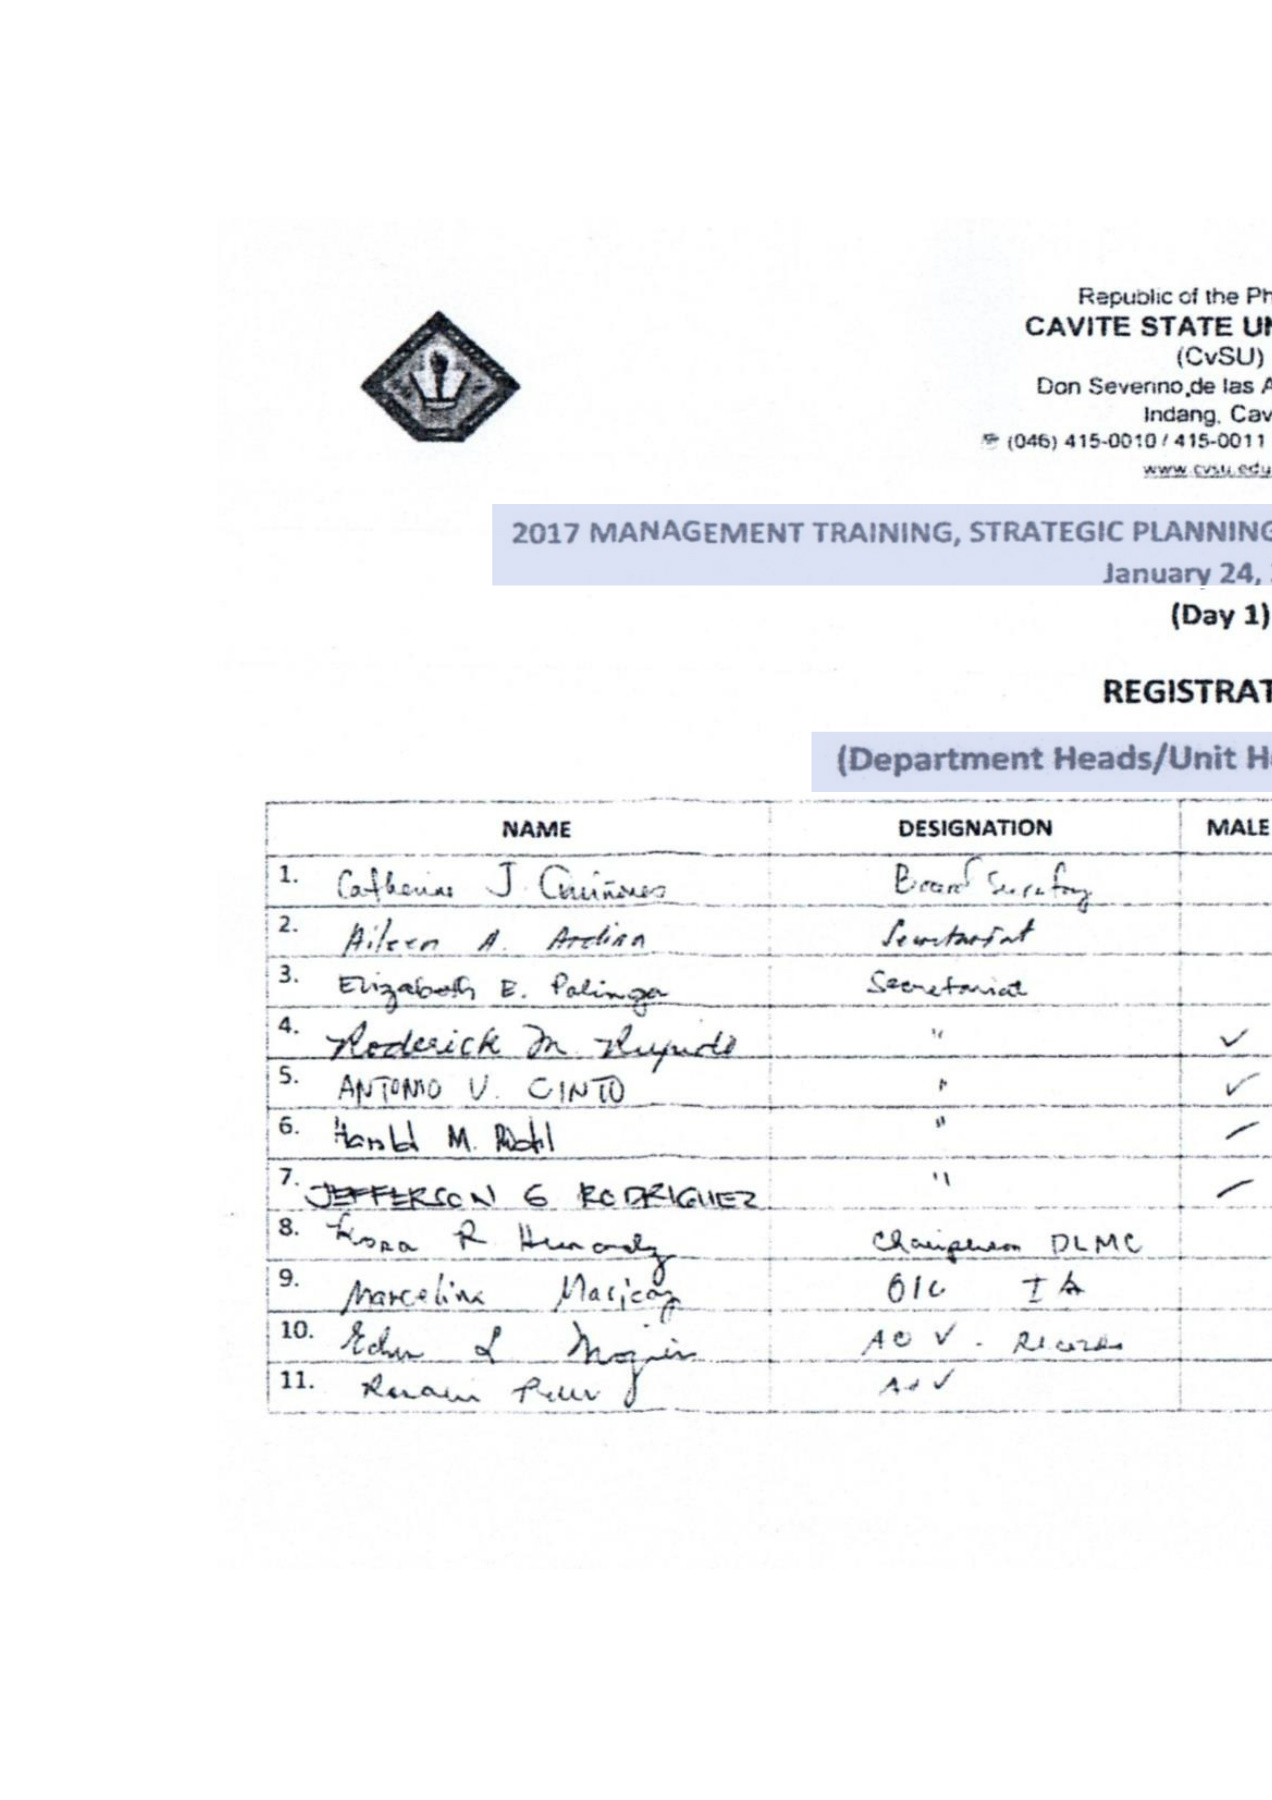 Republic of the Ph
CAVITE STATE UN
(CvSU)
Don Severino de las A
Indang, Cav
(046) 415-0010 / 415-0011
www.cvsu.edu
2017 MANAGEMENT TRAINING, STRATEGIC PLANNING
January 24,
(Day 1)
REGISTRAT
(Department Heads/Unit He
NAME DESIGNATION MALE
1. Catherine J. Quiñones Board Secretary
2. Aileen A. Ardian Secretariat
3. Elizabeth E. Polinga Secretariat
4. Roderick M. Rupido " ✓
5. ANTONIO V. CINTO " ✓
6. Harold M. "
7. JEFFERSON G RODRIGUEZ "
8. R. Chairperson DLMC
9. Marcelina OIC IA
10. L AO V - Records
11. AO V